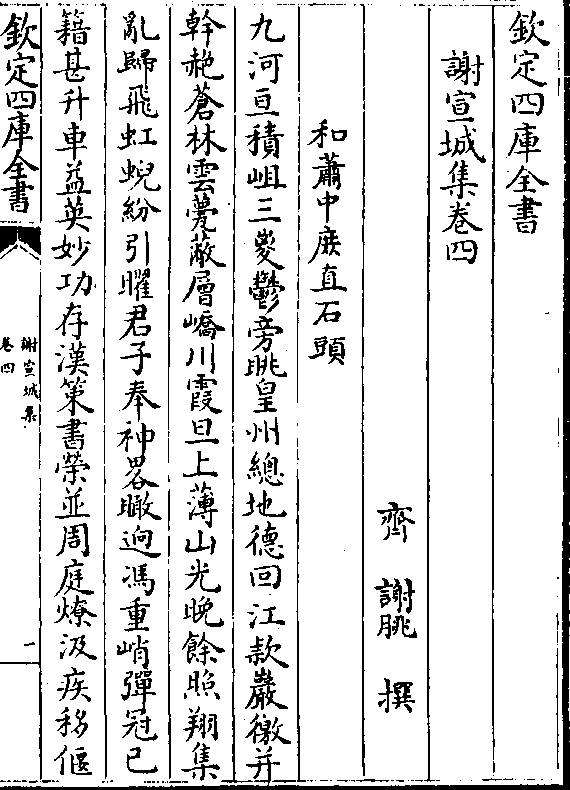 欽定四庫全書
謝宣城集卷四
齊 謝朓 撰
和蕭中庶直石頭
九河亘積岨三嵏鬱旁眺皇州總地德回江款巖徼井
幹赩蒼林雲甍蔽層嶠川霞旦上薄山光晚餘照翔集
亂歸飛虹蜺紛引曜君子奉神畧瞰逈馮重峭彈冠已
籍甚升車益英妙功存漢策書榮並周庭燎汲疾移偃
欽定四庫全書
謝宣城集
卷四
一